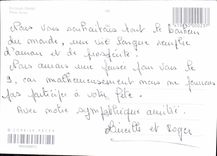 Nous vous souhaitons tout le bonheur
du monde, une vie longue remplie
d'amour et de prospérité.
Nous aurons une pensée pour vous le
9, car malheureusement nous ne pouvons
pas participer à votre fête.
Avec notre sympathique amitié.
Lucette et Roger